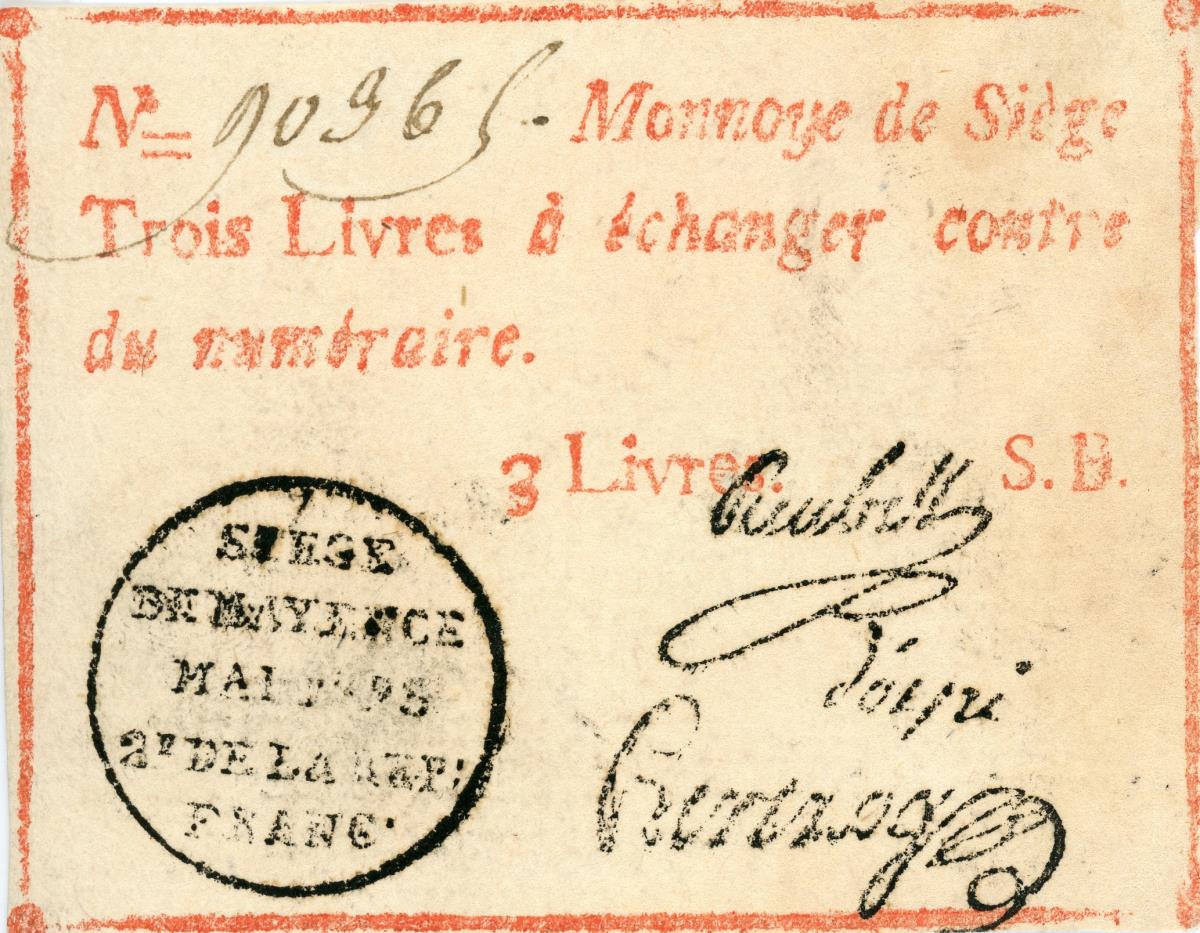 No 90365. Monnoye de Siège
Trois Livres à échanger contre
du numéraire.
3 Livres. S. B.
SIEGE
DE MAYENCE
MAI 1793
2E DE LA REP:
FRANC.
Reubell